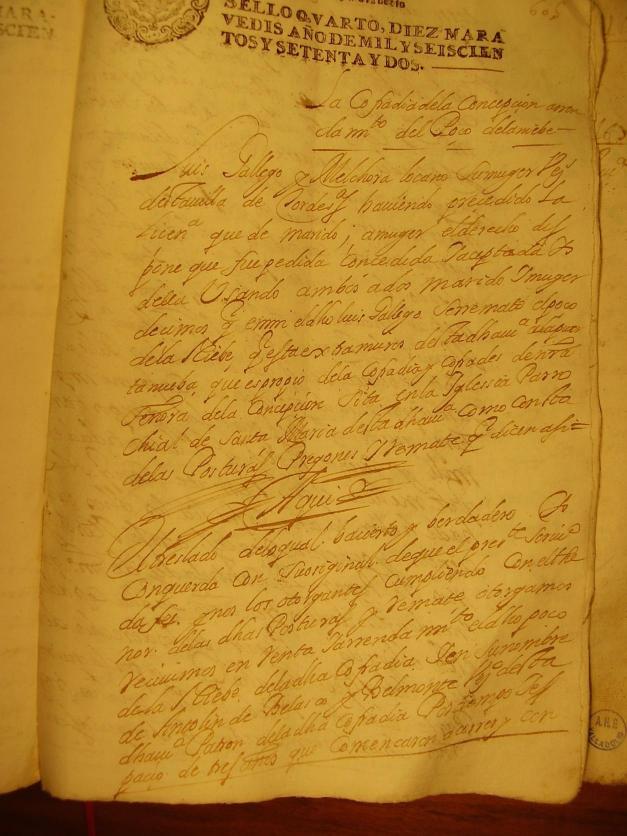 MARA-
SCIEN
605
SELLO QVARTO, DIEZ MARA
VEDIS, AÑO DE MIL Y SEISCIEN
TOS Y SETENTA Y DOS.
La Cofradia de la Concepcion arren
dam.to del Poço de la niebe
Luis Gallego y Melchora loçano Su muger Veçs
desta uilla de haviendo precedido La
licen.a que de marido; a muger el derecho dis
pone que fue pedida concedida Jaceptada
della Usando ambos a dos marido Y muger
decimos q en mi el dho luis Gallego Se remato el poço
de la Niebe, q esta extramuros desta dha ui.a
que es propio de la Cofadia y Cofades de nra
Señora de la Concepcion Sita en la Iglessia Parro
chial de Santa Maria desta dha ui.a Como Consta
de las Posturas Pregones Y Remate q dicen asi=
Aqui
El treslado de lo qual ba cierto y berdadero
Conquerda con Su original de que el pres.te Scriu.o
da fee. Y nos los otorgantes Cumpliendo Con el the
nor de las dhas Posturas y remate otorgamos
reciuimos en renta Y arrendam.to el dho poço
de la Niebe de la dha Cofadia Y en Su nombre
de Antolin de Belasco y Belmonte V.o desta
dha ui.a Patron de la dha Cofadia Por tiempo Y es
pacio de tres años que Comencaron a correr y con
A.H.P.
VALLADOLID